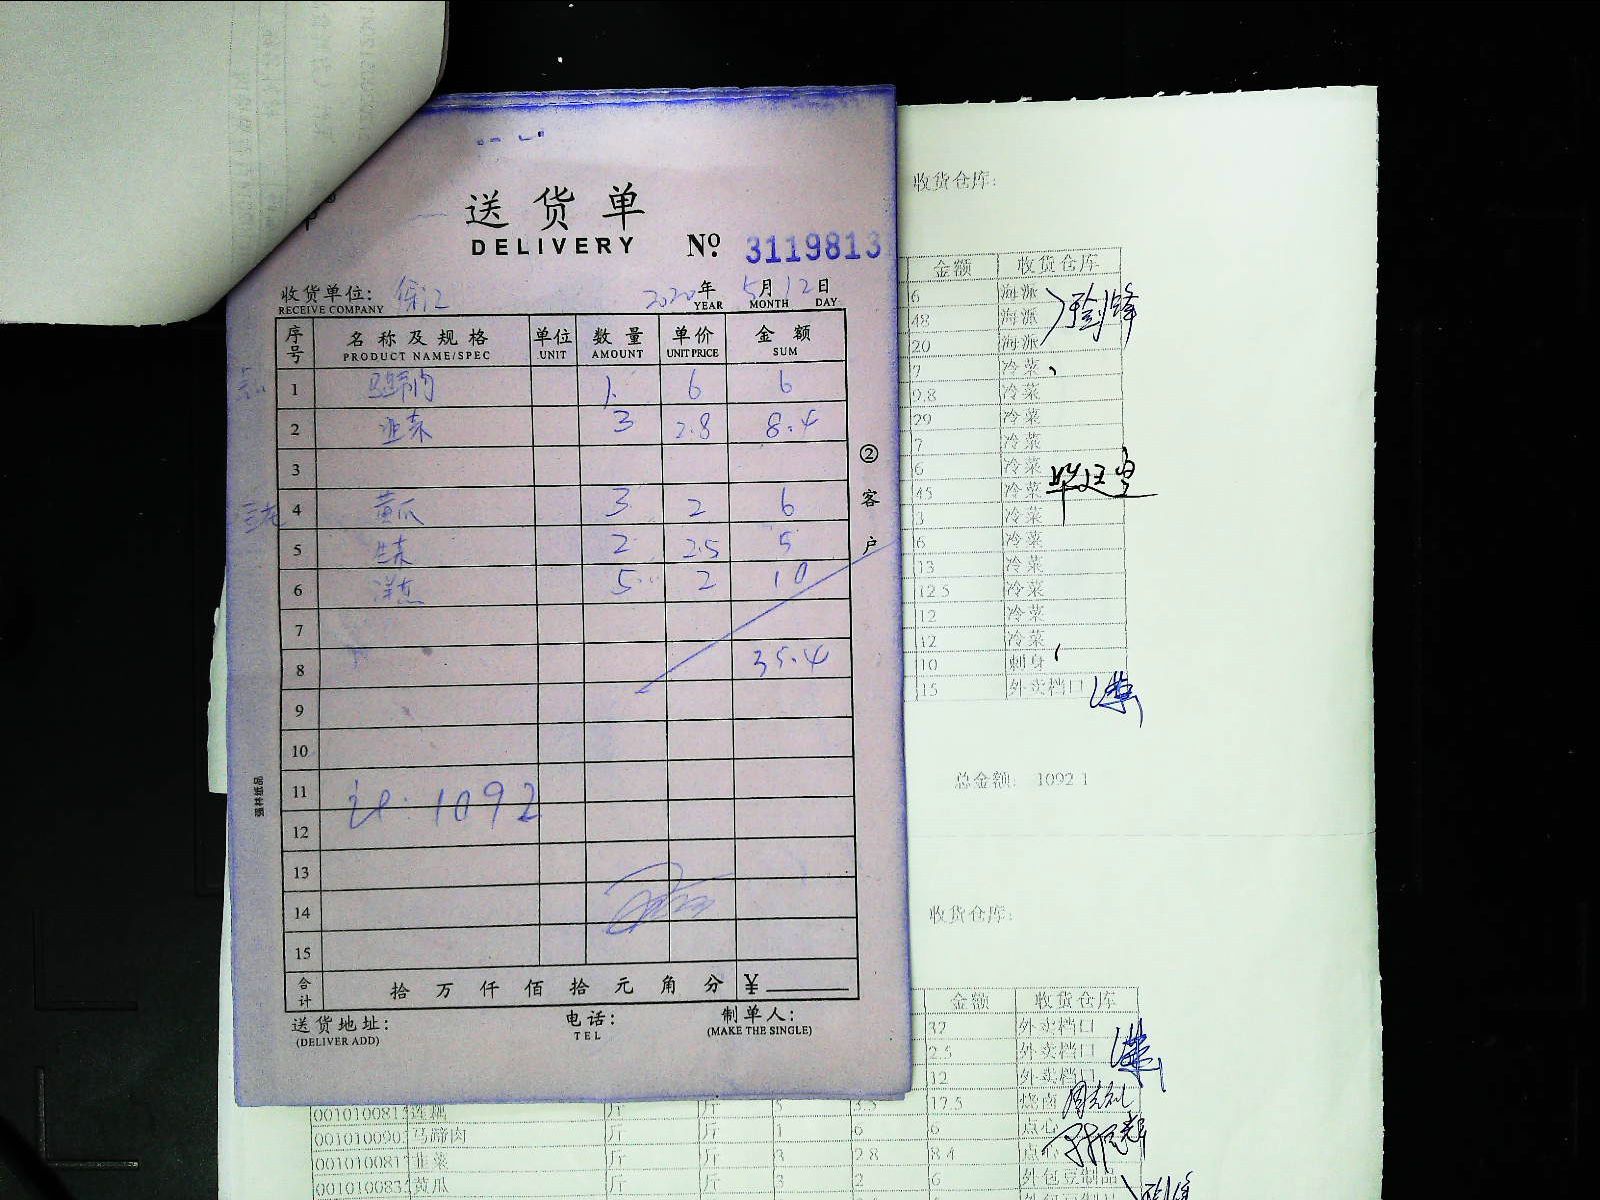 送货单
DELIVERY
№ 3119813
收货单位:
RECEIVE COMPANY
2020年 5月 12日
YEAR MONTH DAY
序号 名称及规格 单位 数量 单价 金额
PRODUCT NAME/SPEC UNIT AMOUNT UNIT PRICE SUM
1 马蹄肉 1 6 6
2 韭菜 3 2.8 8.4
3
4 黄瓜 3 2 6
5 生菜 2 2.5 5
6 洋葱 5 2 10
7
8 35.4
9
10
11
计: 1092
12
13
14
15
合计 拾 万 仟 佰 拾 元 角 分 ¥
送货地址:
(DELIVER ADD)
电话:
TEL
制单人:
(MAKE THE SINGLE)
②客户
强林纸品
收货仓库:
金额 收货仓库
6 海派
48 海派
20 海派
7 冷菜
9.8 冷菜
29 冷菜
7 冷菜
6 冷菜
45 冷菜
3 冷菜
6 冷菜
13 冷菜
12.5 冷菜
12 冷菜
12 冷菜
10 刺身
15 外卖档口
总金额: 1092.1
收货仓库:
金额 收货仓库
32 外卖档口
2.5 外卖档口
12 外卖档口
莲藕 斤 斤 5 3.5 17.5 烧卤
马蹄肉 斤 斤 1 6 6 点心
韭菜 斤 斤 3 2.8 8.4 点心
黄瓜 斤 斤 3 2 6 外包豆制品